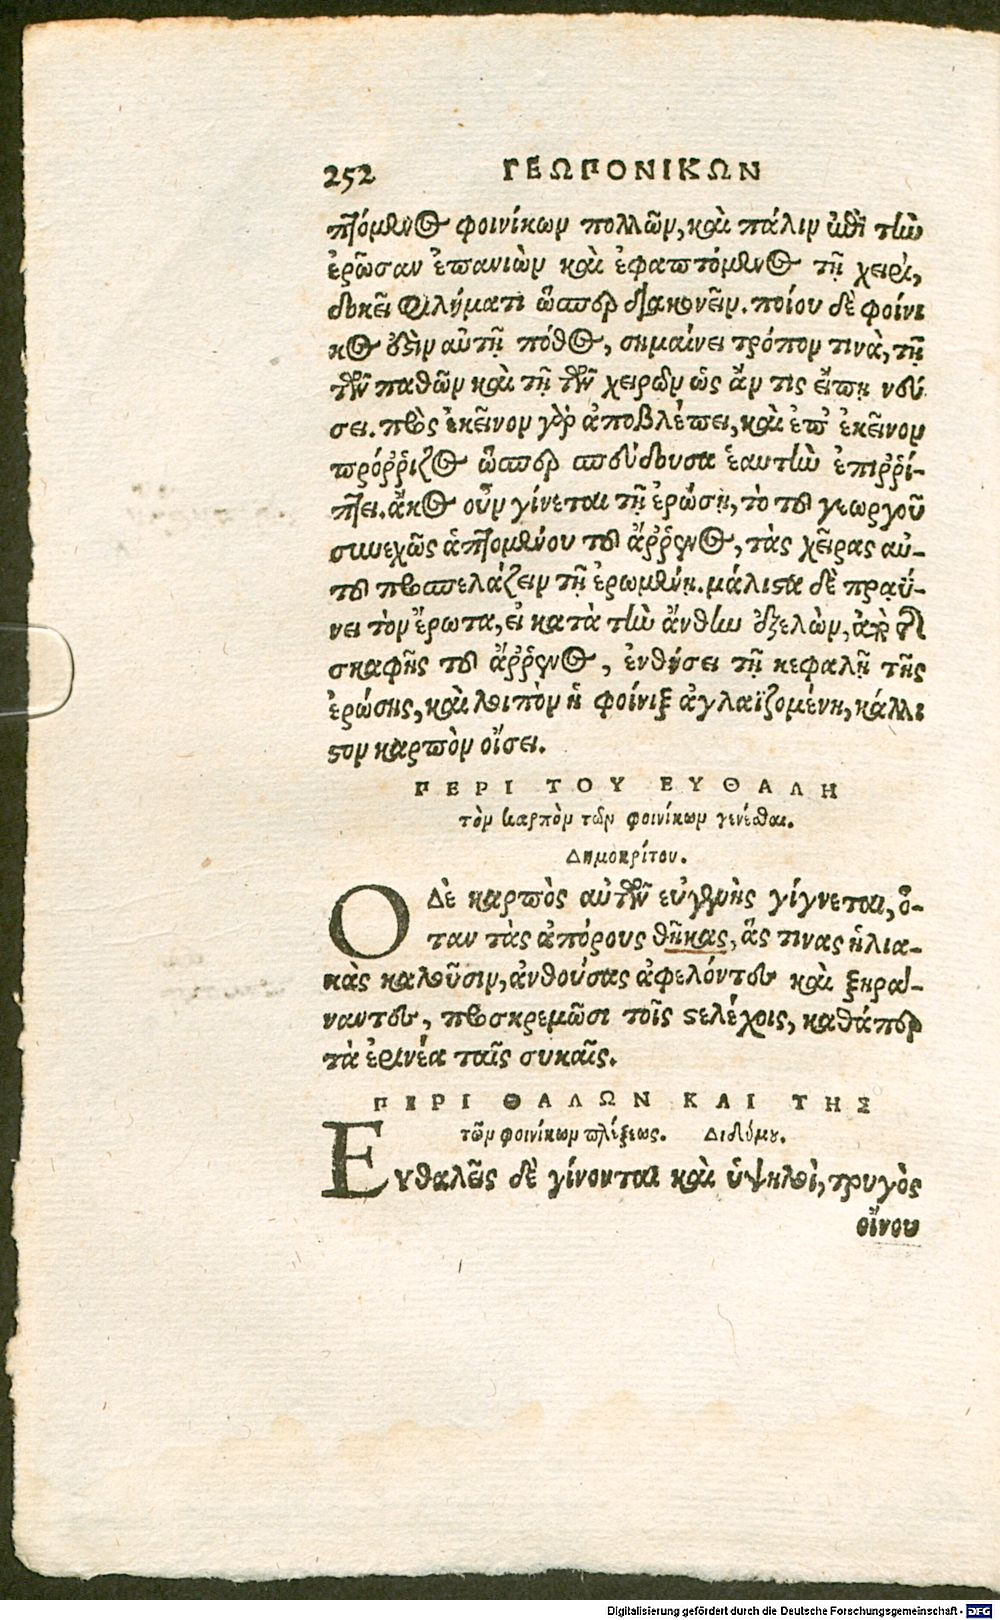 252 ΓΕΩΠΟΝΙΚΩΝ
πτόμενος φοινίκων πολλῶν, καὶ πάλιν ἐπὶ τὴν
ἐρῶσαν ἐπανιὼν καὶ ἐφαπτόμενος τῇ χειρὶ,
δοκεῖ φιλήματι ὥσπερ διακονεῖν. ποίου δὲ φοίνι
κος ἐστὶν αὐτῇ πόθος, σημαίνει τρόπον τινὰ, τῇ
τῶν παθῶν καὶ τῇ τῶν χειρῶν ὡς ἄν τις εἴπῃ νεύ
σει. πρὸς ἐκεῖνον γὰρ ἀποβλέπει, καὶ ἐπ' ἐκεῖνον
πρόῤῥιζος ὥσπερ σπεύδουσα ἑαυτὴν ἐπιῤῥί-
πτει. ἄκος οὖν γίνεται τῇ ἐρώσῃ, τὸ τοῦ γεωργοῦ
συνεχῶς ἁπτομένου τοῦ ἄῤῥενος, τὰς χεῖρας αὐ-
τοῦ προσπελάζειν τῇ ἐρωμένῃ. μάλιστα δὲ πραΰ-
νει τὸν ἔρωτα, εἰ κατὰ τὴν ἄνθην ἐξελὼν, ἀπὸ τῆς
σκαφῆς τοῦ ἄῤῥενος, ἐνθήσει τῇ κεφαλῇ τῆς
ἐρώσης, καὶ λοιπὸν ἡ φοίνιξ ἀγλαϊζομένη, κάλλι
στον καρπὸν οἴσει.
ΠΕΡΙ ΤΟΥ ΕΥΘΑΛΗ
τὸν καρπὸν τῶν φοινίκων γενέσθαι.
Δημοκρίτου.
Ο Δὲ καρπὸς αὐτῶν εὐγενὴς γίγνεται, ὅ-
ταν τὰς ἀπόρους θῆκας, ἅς τινας ἡλια-
κὰς καλοῦσιν, ἀνθούσας ἀφελόντες καὶ ξηρά-
ναντες, προσκρεμῶσι τοῖς στελέχοις, καθάπερ
τὰ ἐρινέα ταῖς συκαῖς.
ΠΕΡΙ ΘΑΛΩΝ ΚΑΙ ΤΗΣ
τῶν φοινίκων πλέξεως. Διδύμου.
Ευθαλεῖς δὲ γίνονται καὶ ὑψηλοὶ, τρυγὸς
οἴνου
Digitalisierung gefördert durch die Deutsche Forschungsgemeinschaft - DFG